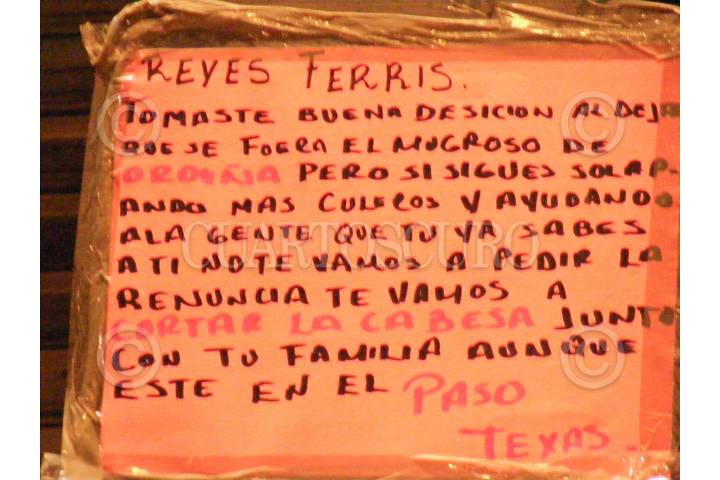 REYES FERRIS.
TOMASTE BUENA DESICION AL DEJ
QUE SE FUERA EL MUGROSO DE
ORDUÑA PERO SI SIGUES SOLAP-
ANDO MAS CULEROS Y AYUDANDO
ALA GENTE QUE TU YA SABES
CUARTOSCURO
A TI NO TE VAMOS A PEDIR LA
RENUNCIA TE VAMOS A
CORTAR LA CABESA JUNTO
CON TU FAMILIA AUNQUE
ESTE EN EL PASO
TEXAS.